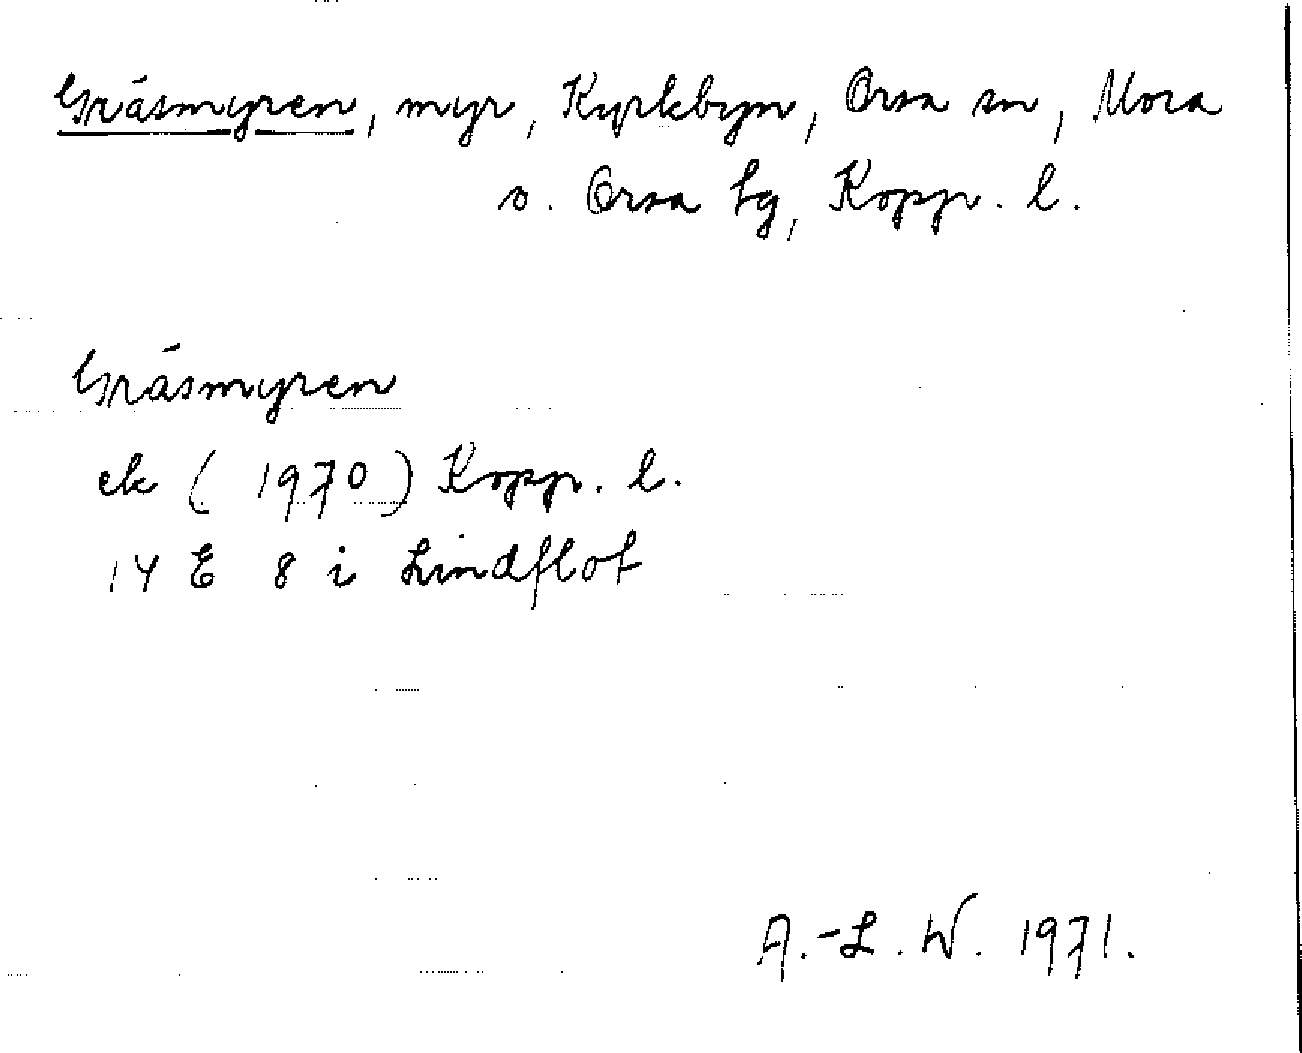 Gräsmyren, myr, Kyrkbyn, Orsa sn, Mora
o. Orsa tg, Kopp. l.
Gräsmyren
ek (1970) Kopp. l.
14 E 8 i Lindflot
A.-L. W. 1971.